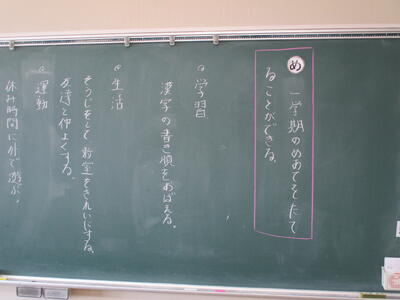 め 一学期のめあてをたて
ることができる。
◎学習
漢字の書き順をおぼえる。
◎生活
そうじをして教室をきれいにする。
友達と仲よくする。
◎運動
休み時間に外で遊ぶ。